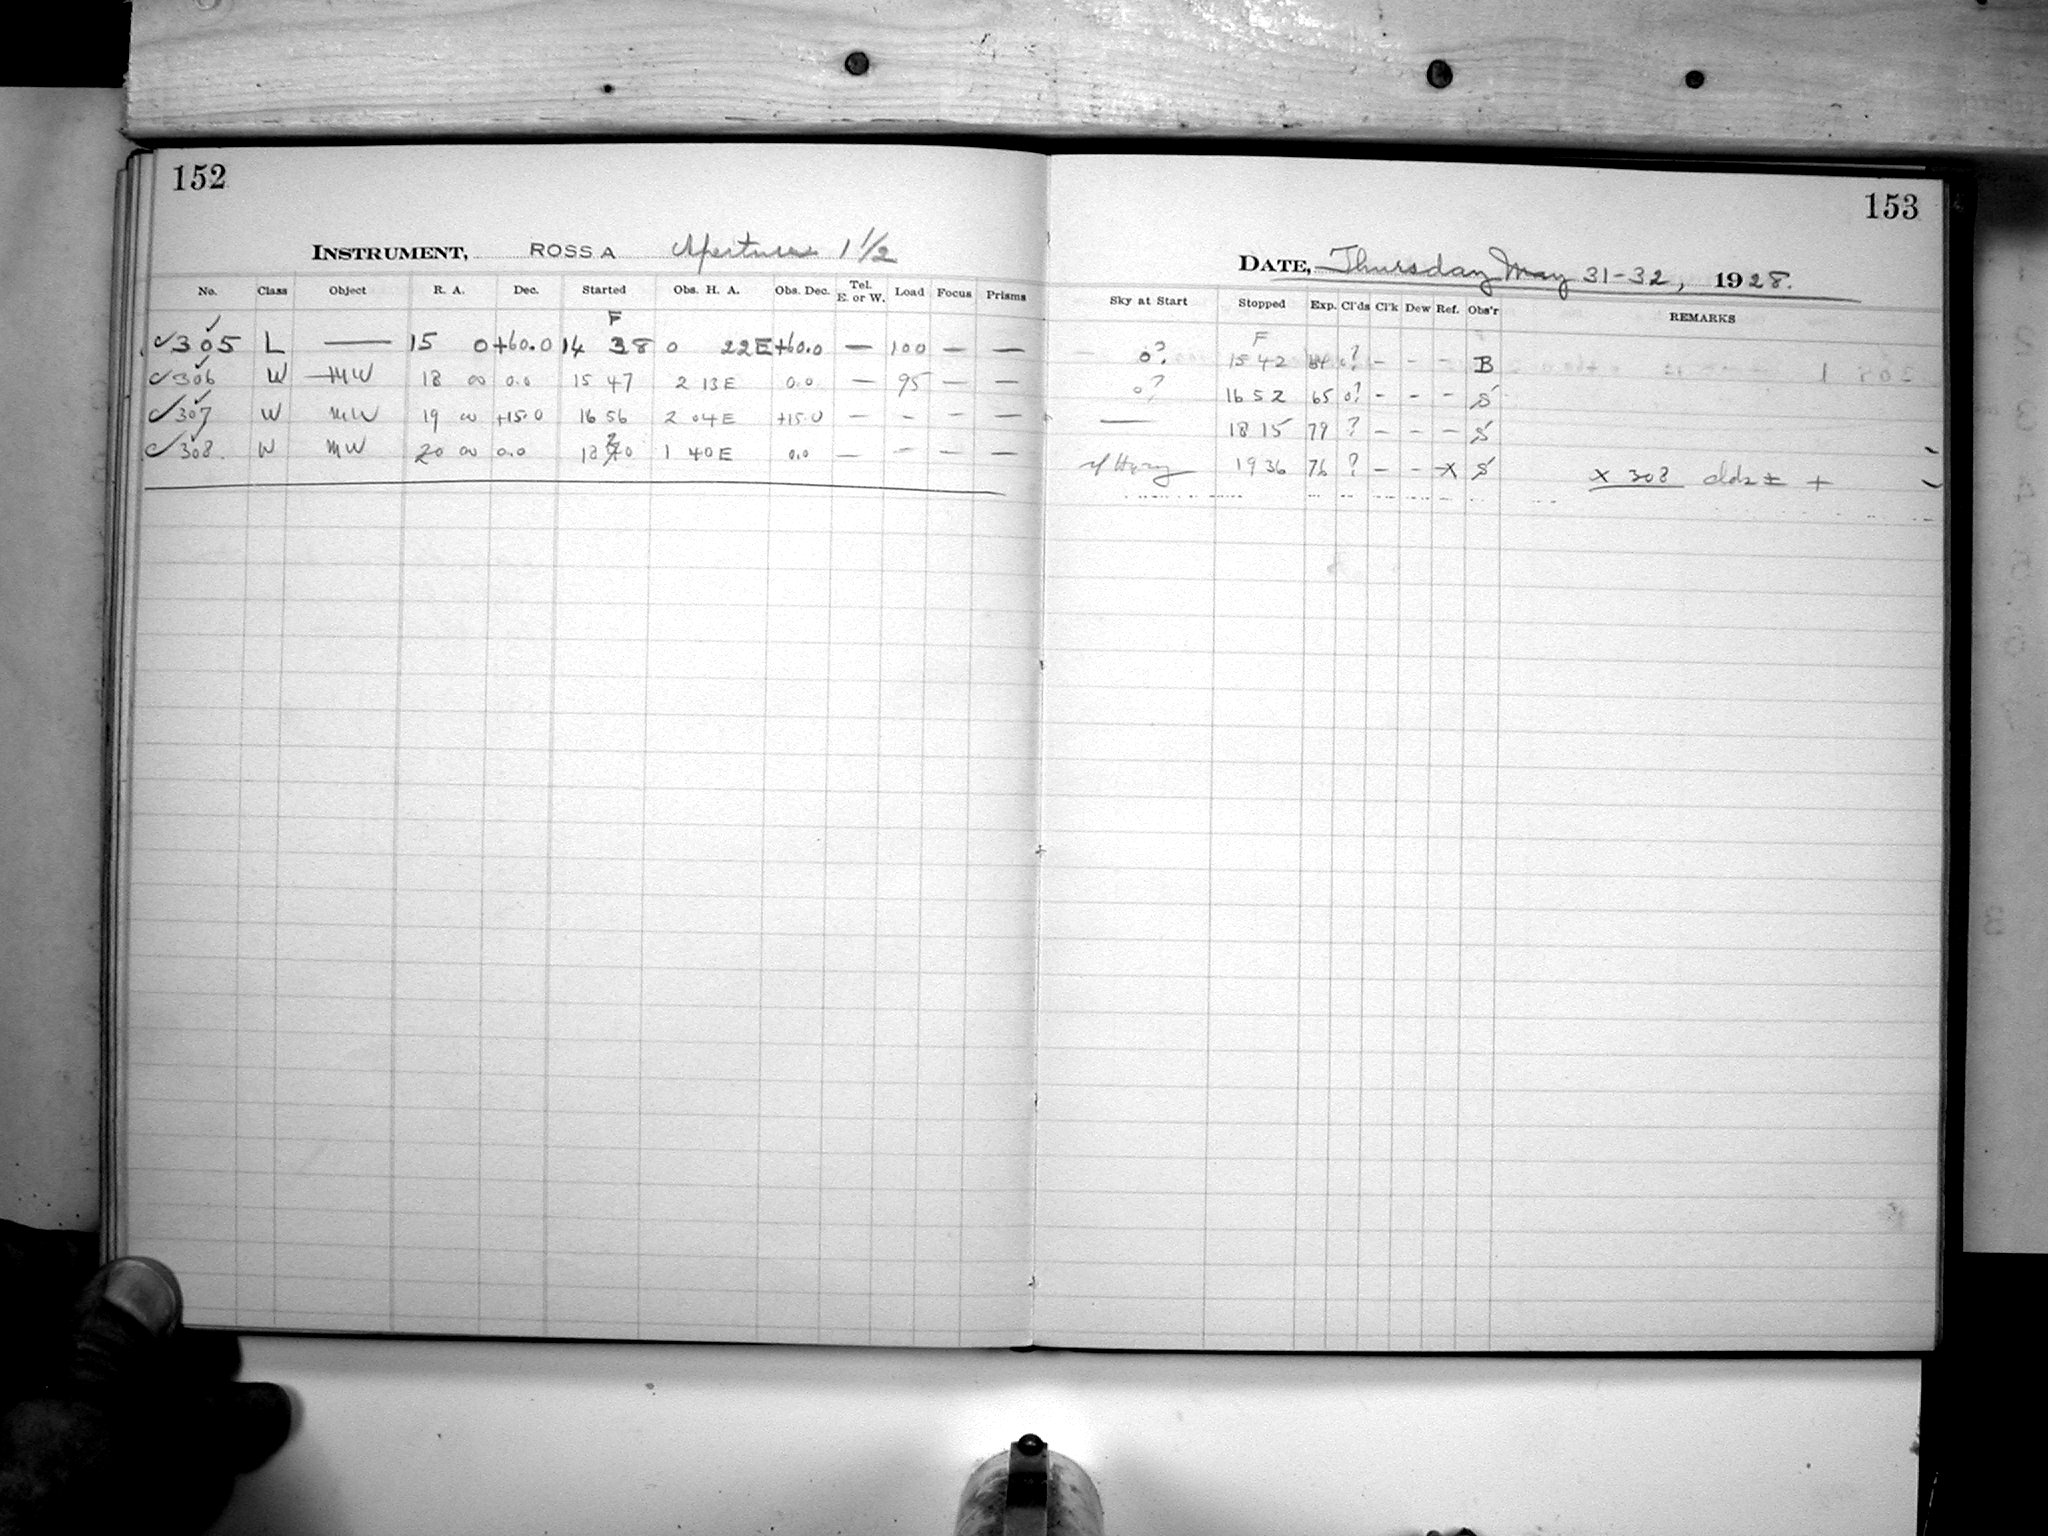 152
INSTRUMENT, ROSS A Aperture 1 1/2
No. Class Object R. A. Dec. Started Obs. H. A. Obs. Dec. Tel. E. or W. Load Focus Prisms
F
✓305 L — 15 0 +60.0 14 38 0 22E +60.0 — 100 — —
✓306 W MW 18 00 0.0 15 47 2 13E 0.0 — 95 — —
✓307 W MW 19 00 +15.0 16 56 2 04E +15.0 — - - —
✓308. W MW 20 00 0.0 18 20 1 40E 0.0 — - — —
153
DATE, Thursday May 31-32, 1928.
Sky at Start Stopped Exp. Cl'ds Cl'k Dew Ref. Obs'r REMARKS
F
0? 15 42 64 0? - - - B
0? 16 52 65 0? - - - S
— 18 15 79 ? - - - S
Hazy 19 36 76 ? - - X S X 308 clds ± +